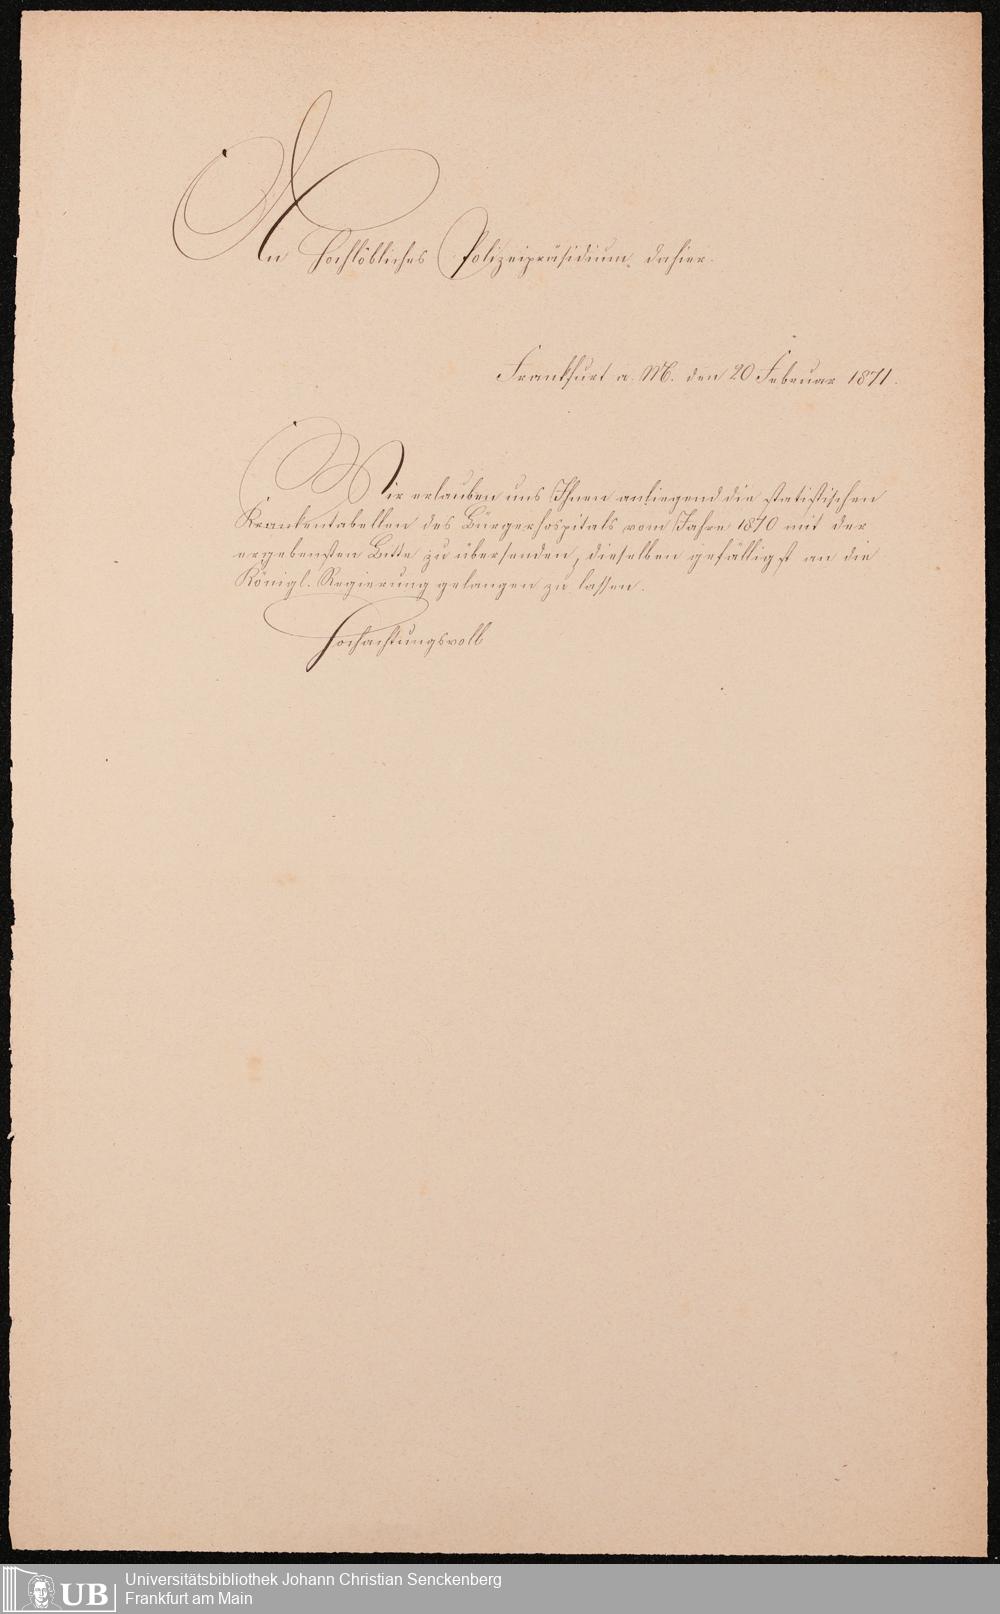 An Hochlöbliches Polizeipräsidium dahier.
Frankfurt a. M. den 20 Februar 1871.
Wir erlauben uns Ihnen anliegend die statistischen
Krankentabellen des Bürgerhospitals vom Jahre 1870 mit der
ergebensten Bitte zu übersenden, dieselben gefälligst an die
Königl. Regierung gelangen zu lassen.
Hochachtungsvoll
UB
Universitätsbibliothek Johann Christian Senckenberg
Frankfurt am Main